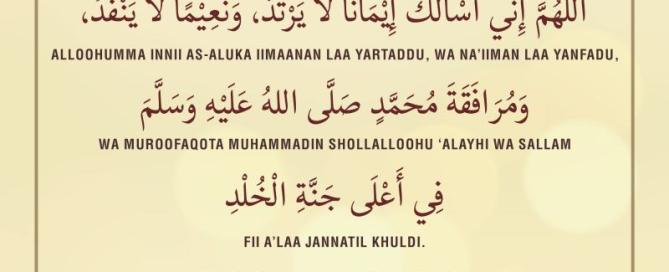 اللَّهُمَّ إِنِّي أَسْأَلُكَ إِيْمَانًا لَا يَرْتَدُّ، وَنَعِيْمًا لَا يَنْفَدُ،
ALLOOHUMMA INNII AS-ALUKA IIMAANAN LAA YARTADDU, WA NA'IIMAN LAA YANFADU,
وَمُرَافَقَةَ مُحَمَّدٍ صَلَّى اللهُ عَلَيْهِ وَسَلَّمَ
WA MUROOFAQOTA MUHAMMADIN SHOLLALLOOHU ‘ALAYHI WA SALLAM
فِي أَعْلَى جَنَّةِ الْخُلْدِ
FII A’LAA JANNATIL KHULDI.